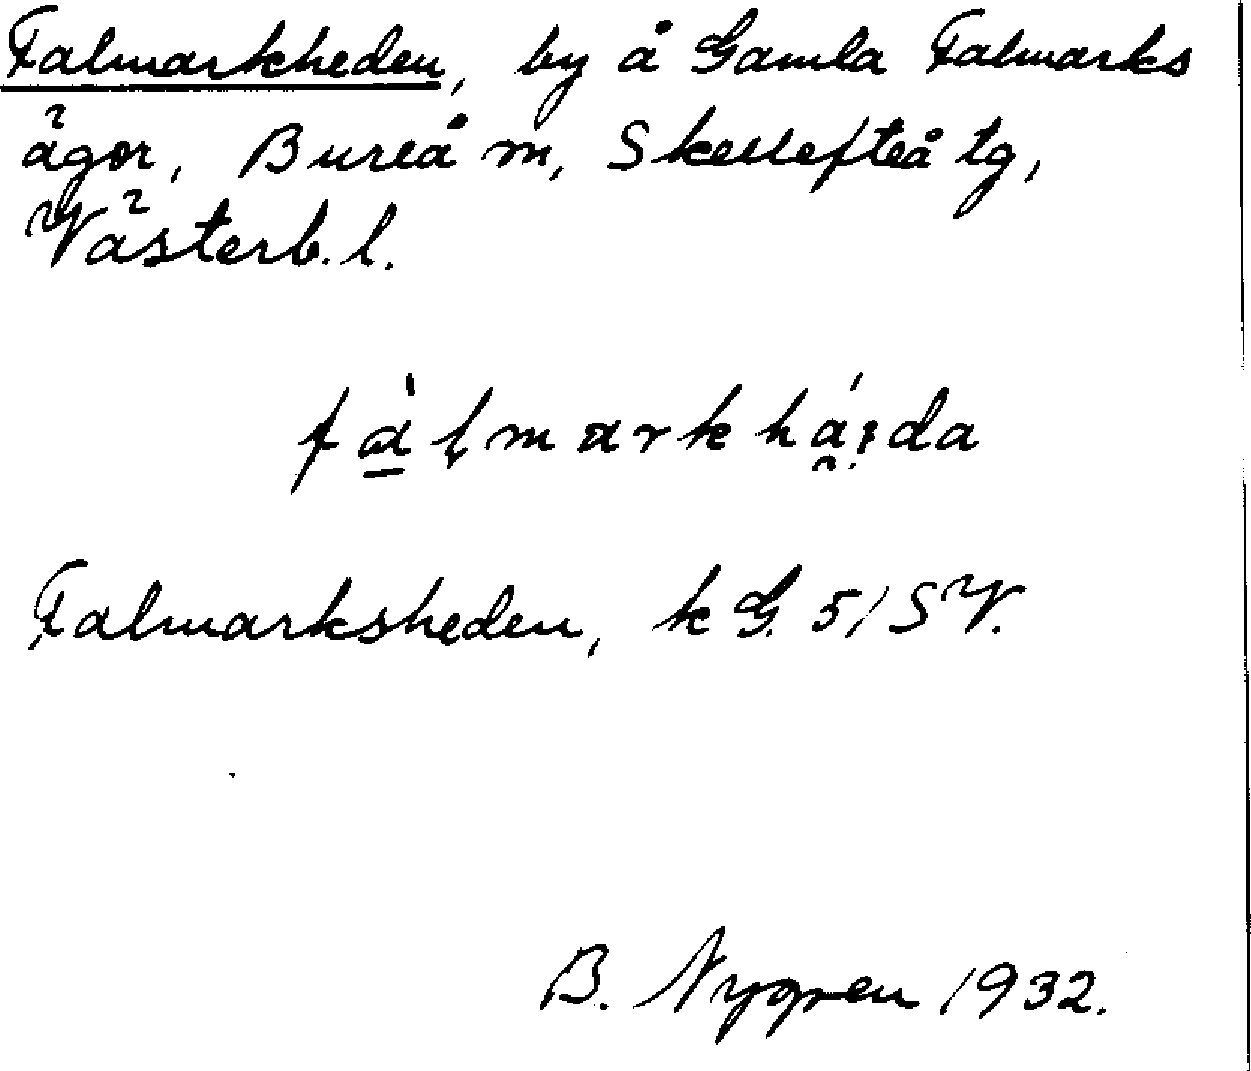 Falmarkheden, by å Gamla Falmarks
ägor, Bureå m, Skellefteå tg,
Västerb. l.
Falmarksheden, k G. 5/SV.
B. Nygren 1932.